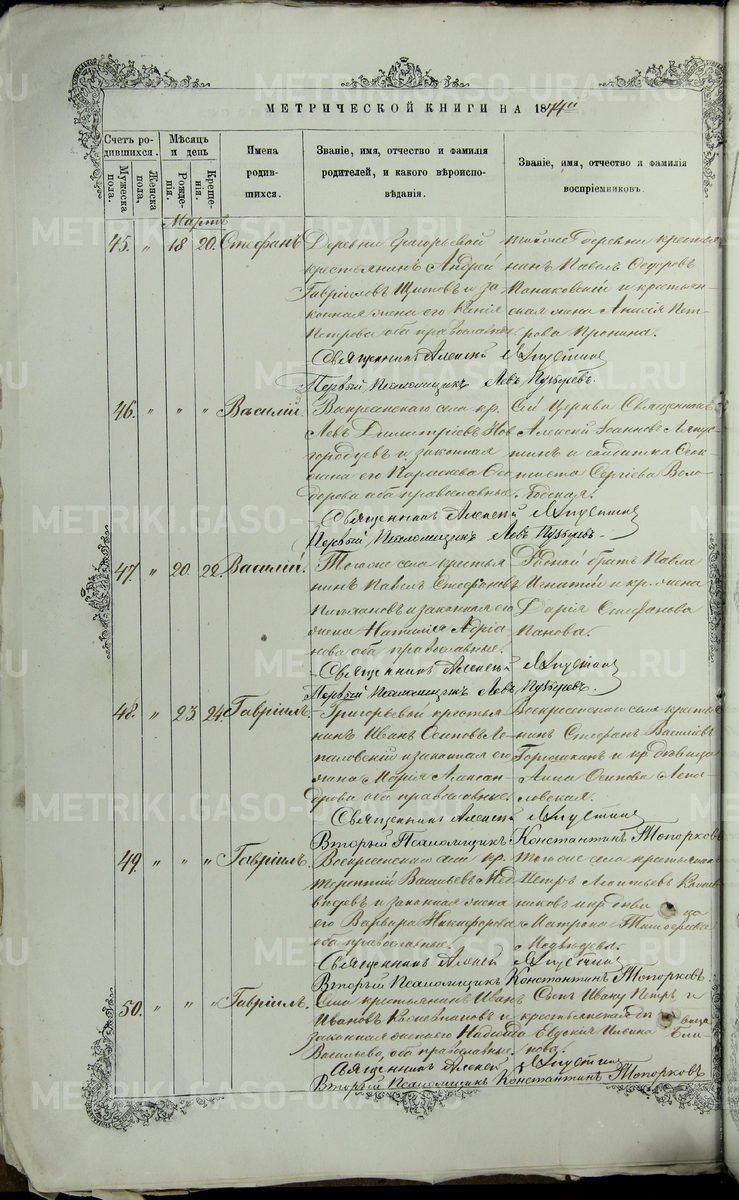 МЕТРИЧЕСКОЙ КНИГИ НА 1874й
Счетъ родившихся.
Мужеска пола.
Женска пола.
Мѣсяцъ и день
Рожденія.
Крещенія.
Имена родившихся.
Званіе, имя, отчество и фамилія родителей, и какого вѣроисповѣданія.
Званіе, имя, отчество и фамилія воспріемниковъ.
Мартъ
45. " 18 20. Стефанъ
Деревни Григорьевой
крестьянинъ Андрей
Гавріиловъ и за
конная жена его Ксенія
Петрова оба православные
той же деревни крестья
нинъ Павелъ Ѳедоровъ
и крестьян
ская жена Анисія Пет
рова Пронина.
Священникъ Алексій Ляпустинъ
Первый Псаломщикъ Левъ Пузыревъ.
46. " " " Василій
Воскресенскаго села кр.
Левъ Димитріевъ Нов
городцевъ и законная
жена его Параскева Ѳео
дорова оба православные.
Сей Церкви Священникъ
Алексій Іоанновъ Ляпус
тинъ и солдатка Ѳеок
тиста Сергіева Воло
годская.
Священникъ Алексій Ляпустинъ
Первый Псаломщикъ Левъ Пузыревъ.
47. " 20. 22. Василій.
Того же села крестья
нинъ Павелъ Стефановъ
и законная его
жена Наталія Адріа
нова оба православные.
Родной братъ Павла
Игнатій и кр. жена
Дарія Стефанова
Панова.
Священникъ Алексій Ляпустинъ
Первый Псаломщикъ Левъ Пузыревъ.
48. " 23 24. Гавріилъ.
Григорьевой крестья
нинъ Иванъ Осиповъ Ло
паловскій и законная его
жена Марія Алексан
дрова оба православные.
Воскресенскаго села кресть
нинъ Стефанъ Васильевъ
и кр. дѣвица
Анна Осипова Лопа
ловская.
Священникъ Алексій Ляпустинъ
Второй Псаломщикъ Константинъ Топорковъ
49. " " " Гавріилъ.
Воскресенскаго села кр.
Терентій Васильевъ Мед
вѣдевъ и законная жена
его Варвара Никифорова
оба православные.
Того же села крестьянинъ
Петръ Леонтьевъ
и кр. дѣвица
Матрона Тимофеева
Медвѣдева.
Священникъ Алексій Ляпустинъ
Второй Псаломщикъ Константинъ Топорковъ.
50. " " " Гавріилъ.
Села крестьянинъ Иванъ
Ивановъ и
законная жена его Надежда
Васильева, оба православные.
Сынъ Ивану Петръ и
крестьянская дѣвица
Евдокія Ильина
Священникъ Алексій Ляпустинъ
Второй Псаломщикъ Константинъ Топорковъ
METRIKI.GASO-URAL.RU